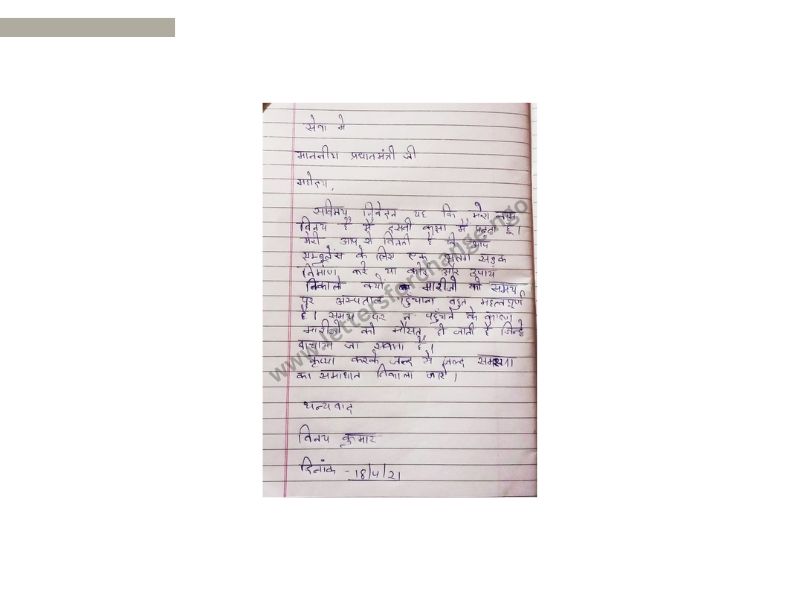 सेवा मे
माननीय प्रधानमंत्री जी
महोदय,
सविनय निवेदन यह कि मेरा नाम
विनय है मै दसवी कक्षा मे पढता हू।
मेरी आप से विनती है की आप
एम्बुलेंस के लिए एक अलग सड़क
निर्माण करे या कोई और उपाय
निकाले क्यों की मारीजो को समय
पर अस्पताल पहुंचाना बहुत महत्वपूर्ण
है। समय पर न पहुंचने के कारण
मारीजो को मौसत हो जाती है जिन्हे
बाचाया जा सकता है।
कृप्या करके जल्द से जल्द समस्या
का समाधान निकाला जाये।
धन्यवाद
विनय कुमार
दिनांक - 18/4/21
www.lettersforchange.ngo